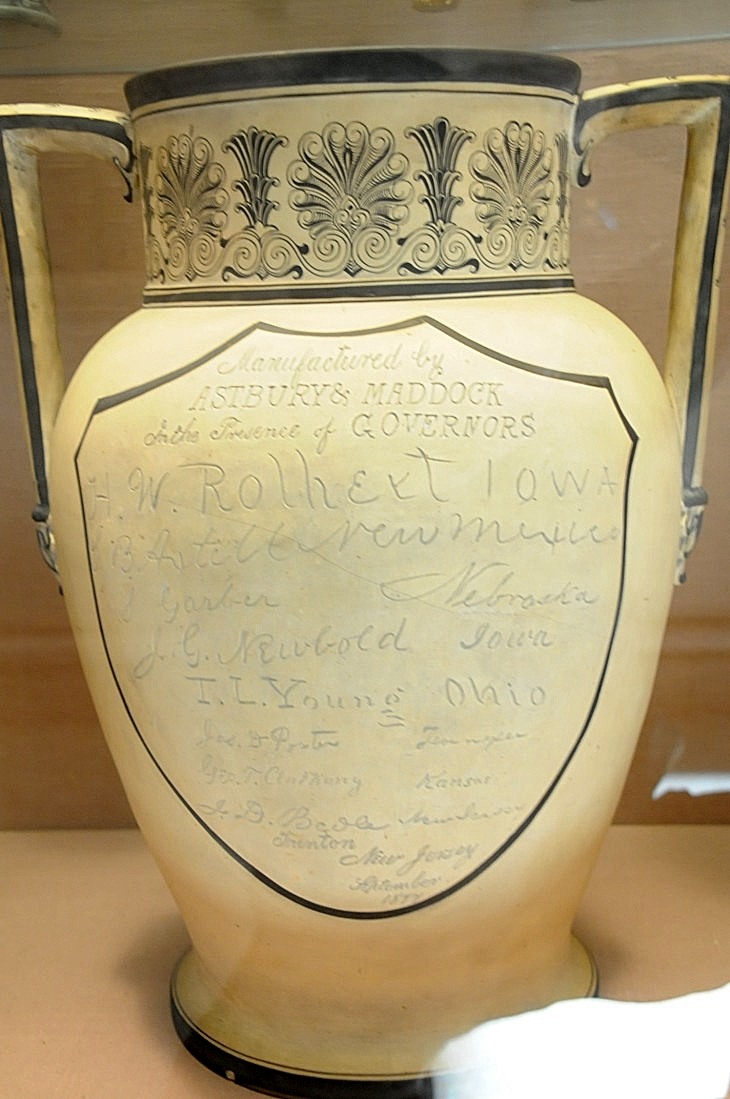 Manufactured by
ASTBURY & MADDOCK
In the Presence of GOVERNORS
H. W. Rothert IOWA
New Mexico
Garber Nebraska
J. G. Newbold Iowa
T. L. Young Ohio
Jas. D. Porter Tennessee
Geo. T. Anthony Kansas
J. D. Bedle New Jersey
Trenton
New Jersey
September